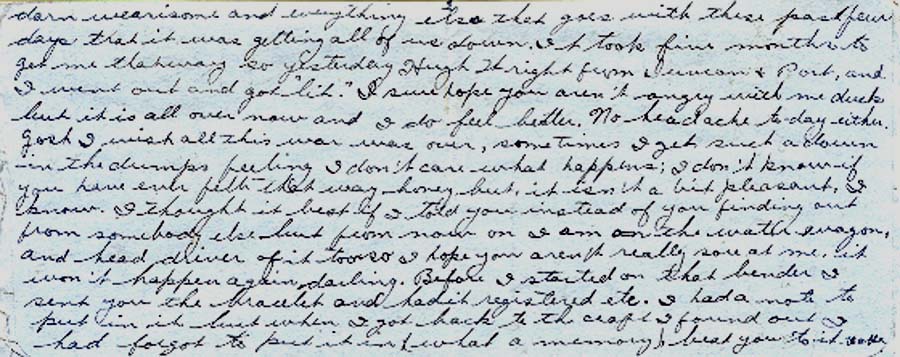 darn wearisome and everything else that goes with these past few
days that it was getting all of us down. It took five months to
get me that way so yesterday Hugh Wright from Duncan & Port, and
I went out and got "lit." I sure hope you aren't angry with me duck
but it is all over now and I do feel better. No headache today either.
Gosh I wish all this war was over, sometimes I get such a down
in the dumps feeling I don't care what happens, I don't know if
you have ever felt that way honey but, it isn't a bit pleasant, I
know. I thought it best if I told you instead of you finding out
from somebody else but from now on I am on the water wagon,
and head driver of it too so I hope you aren't really sore at me. it
won't happen again, darling. Before I started on that bender I
sent you the bracelet and had it registered etc. I had a note to
put in it but when I got back to the craft I found out I
had forgot to put it in (what a memory) beat you to it